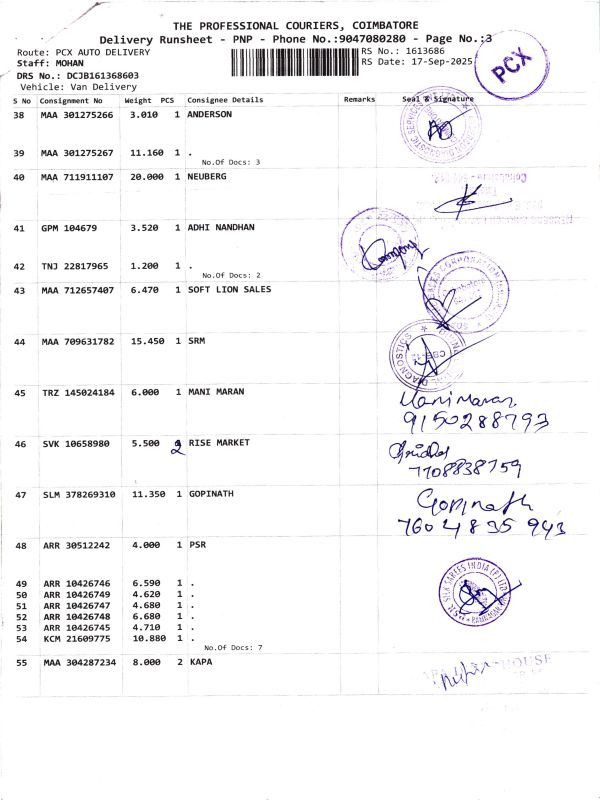 THE PROFESSIONAL COURIERS, COIMBATORE
Delivery Runsheet - PNP - Phone No.:9047080280 - Page No.:3
Route: PCX AUTO DELIVERY RS No.: 1613686
Staff: MOHAN RS Date: 17-Sep-2025
DRS No.: DCJB161368603
Vehicle: Van Delivery
PCX
S No Consignment No Weight PCS Consignee Details Remarks Seal & Signature
38 MAA 301275266 3.010 1 ANDERSON
39 MAA 301275267 11.160 1 .
No.Of Docs: 3
40 MAA 711911107 20.000 1 NEUBERG
41 GPM 104679 3.520 1 ADHI NANDHAN
42 TNJ 22817965 1.200 1 .
No.Of Docs: 2
43 MAA 712657407 6.470 1 SOFT LION SALES
44 MAA 709631782 15.450 1 SRM
45 TRZ 145024184 6.000 1 MANI MARAN Manimaran
9150288793
46 SVK 10658980 5.500 2 RISE MARKET
7708838759
47 SLM 378269310 11.350 1 GOPINATH Gopinath
7604835943
48 ARR 30512242 4.000 1 PSR
49 ARR 10426746 6.590 1 .
50 ARR 10426749 4.620 1 .
51 ARR 10426747 4.680 1 .
52 ARR 10426748 6.680 1 .
53 ARR 10426745 4.710 1 .
54 KCM 21609775 10.880 1 .
No.Of Docs: 7
PSR SILK SAREES INDIA (P) LTD
55 MAA 304287234 8.000 2 KAPA
HOUSE